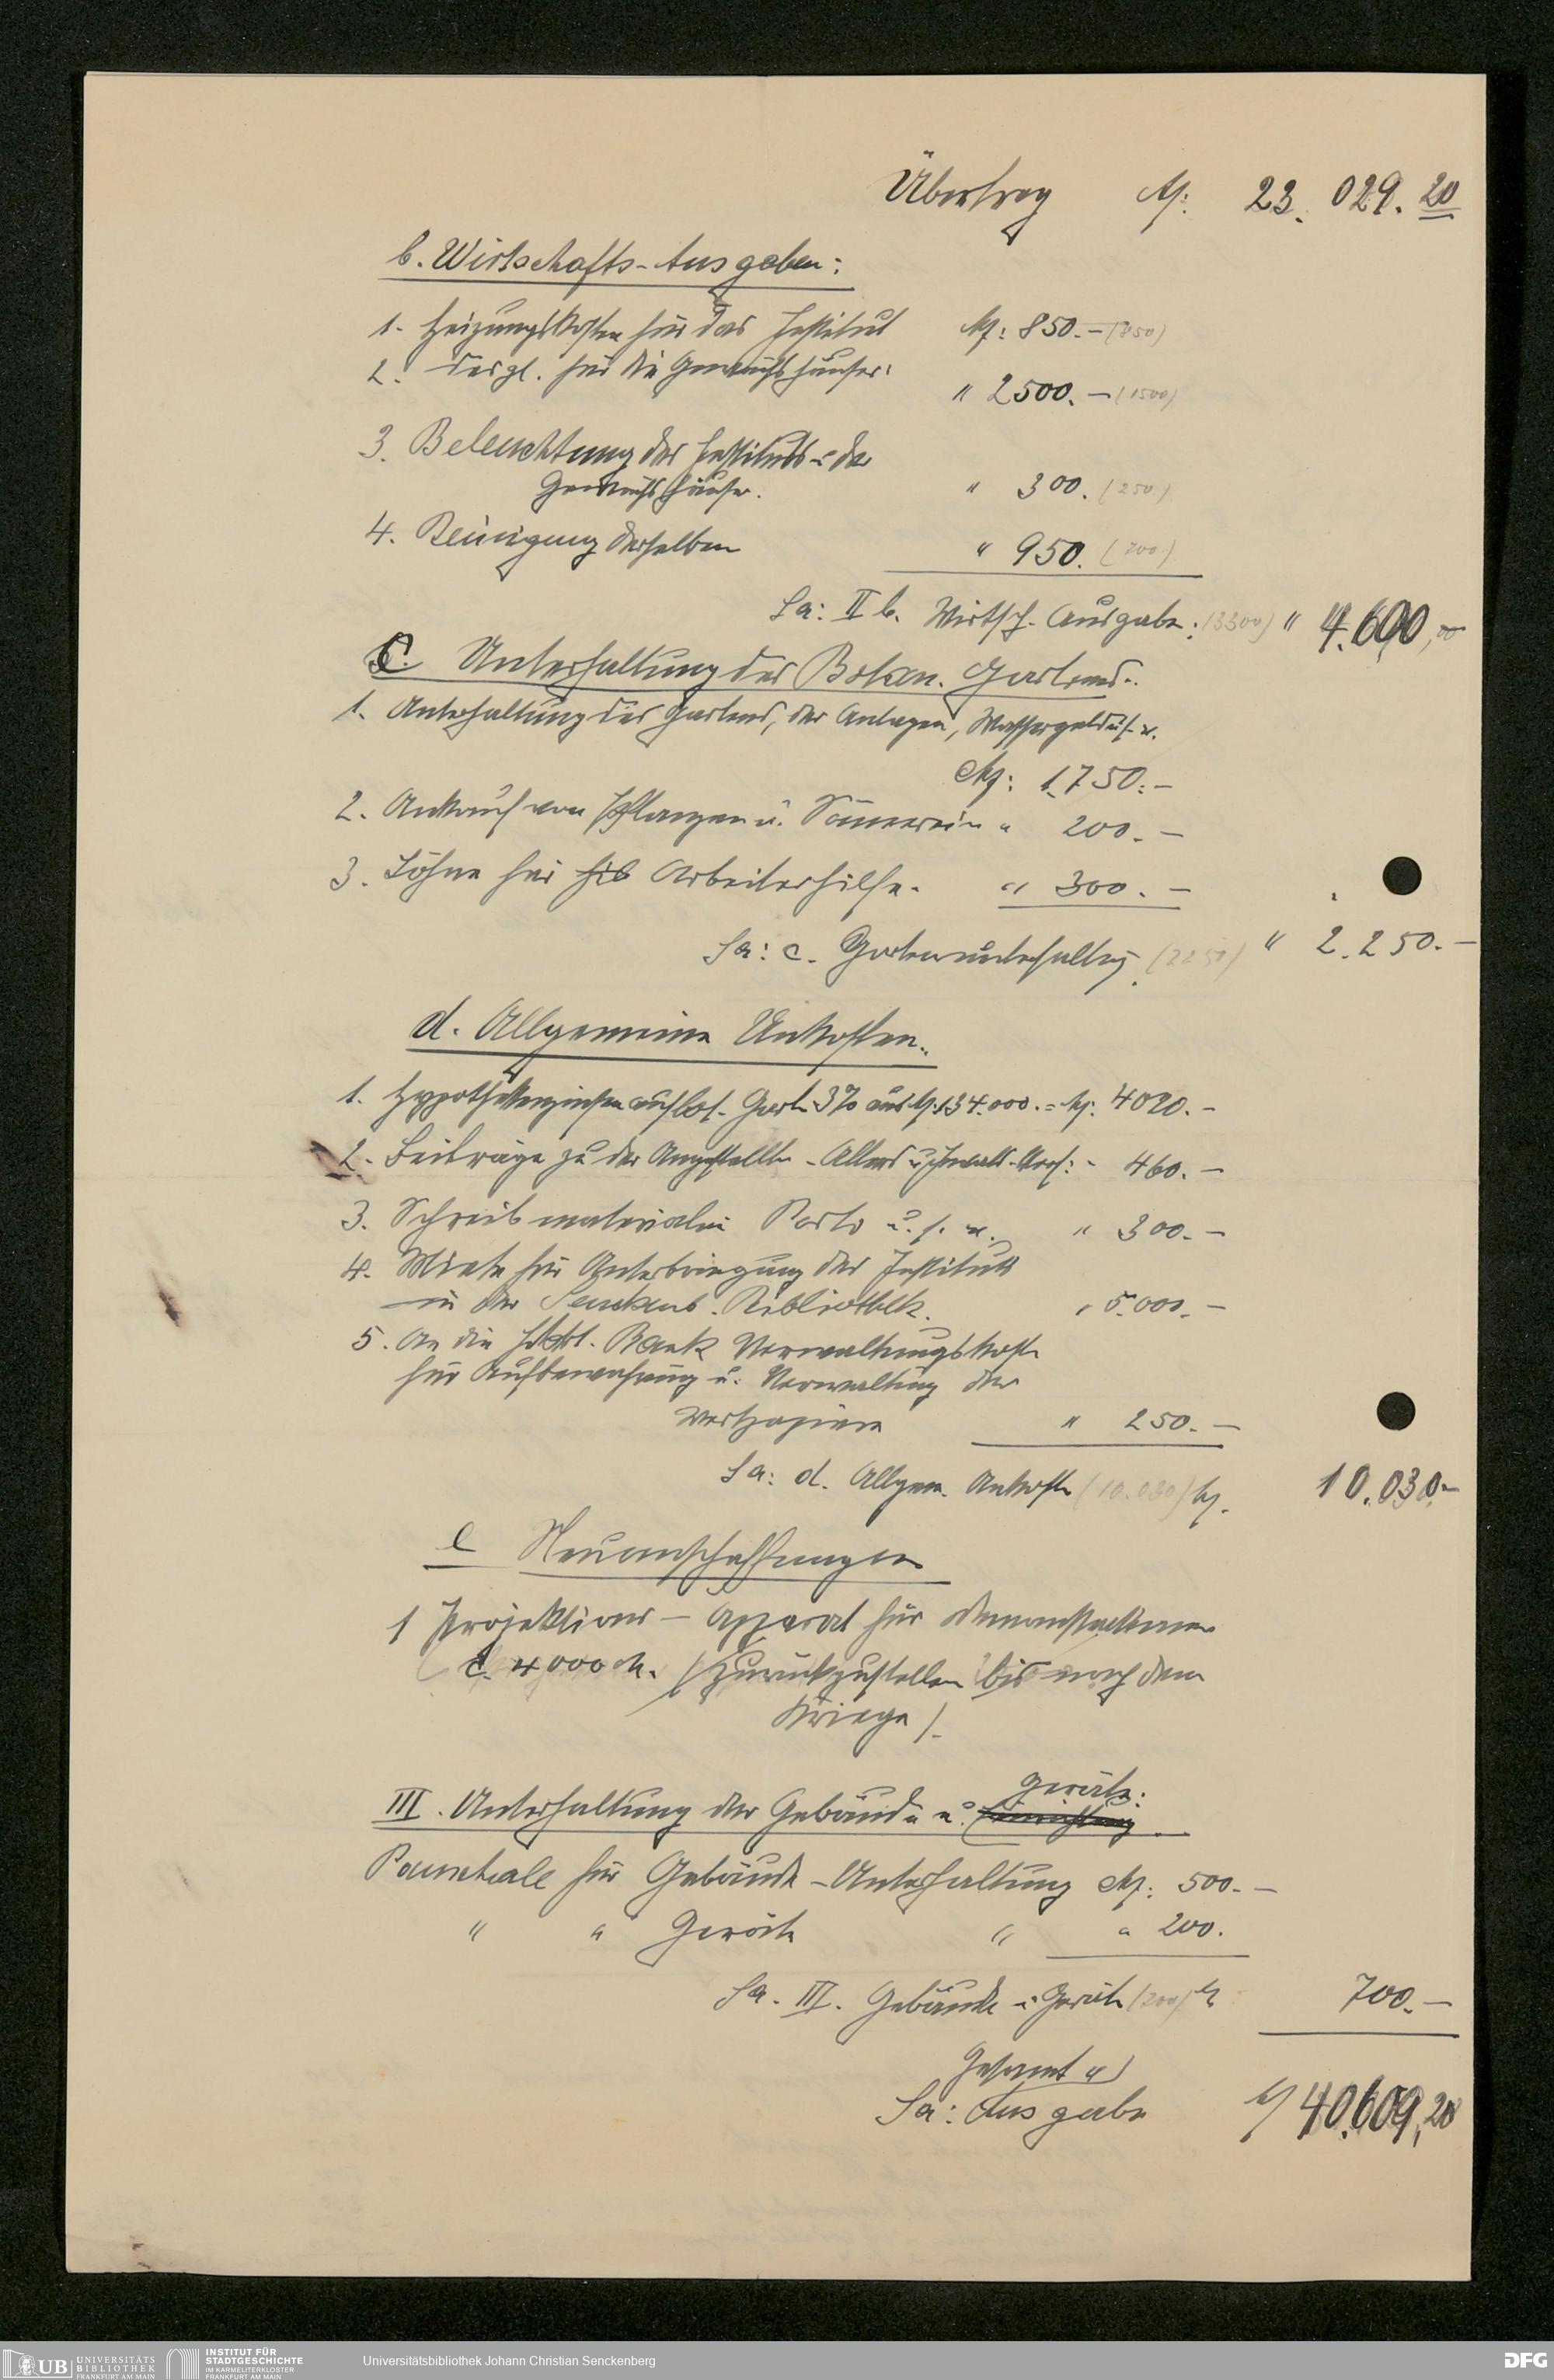 Übertrag M: 23.029.20
b. Wirtschafts-Ausgaben:
1. Heizungskosten für das Institut M: 850.- (850)
2. desgl. für die Gewächshäuser: " 2500.- (1500)
3. Beleuchtung des Instituts u. der
Gewächshäuser. " 300. (250.)
4. Reinigung derselben " 950. (700)
Sa: II b. Wirtsch. Ausgabe: (3300) " 4.600,00
C. Unterhaltung des Botan. Gartens.
1. Unterhaltung des Gartens, der Anlagen, Wassergeld u.s.w.
M: 1.750.-
2. Ankauf von Pflanzen u. Sämereien " 200.-
3. Löhne für Arbeiterhilfe. " 300.-
Sa: c. Gartenunterhaltg. (2250) " 2.250.-
d. Allgemeine Unkosten.
1. Hypothekenzinsen auf bot. Gart. 3% aus M. 134.000. = M: 4020.-
2. Beiträge zu der Angestellten - Alters u. Invalid. Vers: - 460.-
3. Schreibmaterialien Porto u.s.w. " 300.-
4. Miete für Unterbringung des Instituts
in der Senckenb. Bibliothek. " 5.000.-
5. An die Bank Verwaltungskosten
für Aufbewahrung u. Verwaltung der
Wertpapiere " 250.-
Sa: d. Allgem. Unkosten (10.030) M. 10.030.-
e Neuanschaffungen
1 Projektions-Apparat für Demonstrationen
c. 4000 M. (zurückzustellen bis nach dem
Kriege).
III. Unterhaltung der Gebäude u. Einrichtung Geräte:
Pauschale für Gebäude-Unterhaltung M: 500.-
" " Geräte " " 200.
Sa. III. Gebäude u. Geräte (700) M 700.-
Gesamt
Sa: Ausgabe M 40.609,20
UB UNIVERSITÄTS
BIBLIOTHEK
FRANKFURT AM MAIN
INSTITUT FÜR
STADTGESCHICHTE
IM KARMELITERKLOSTER
FRANKFURT AM MAIN
Universitätsbibliothek Johann Christian Senckenberg
DFG